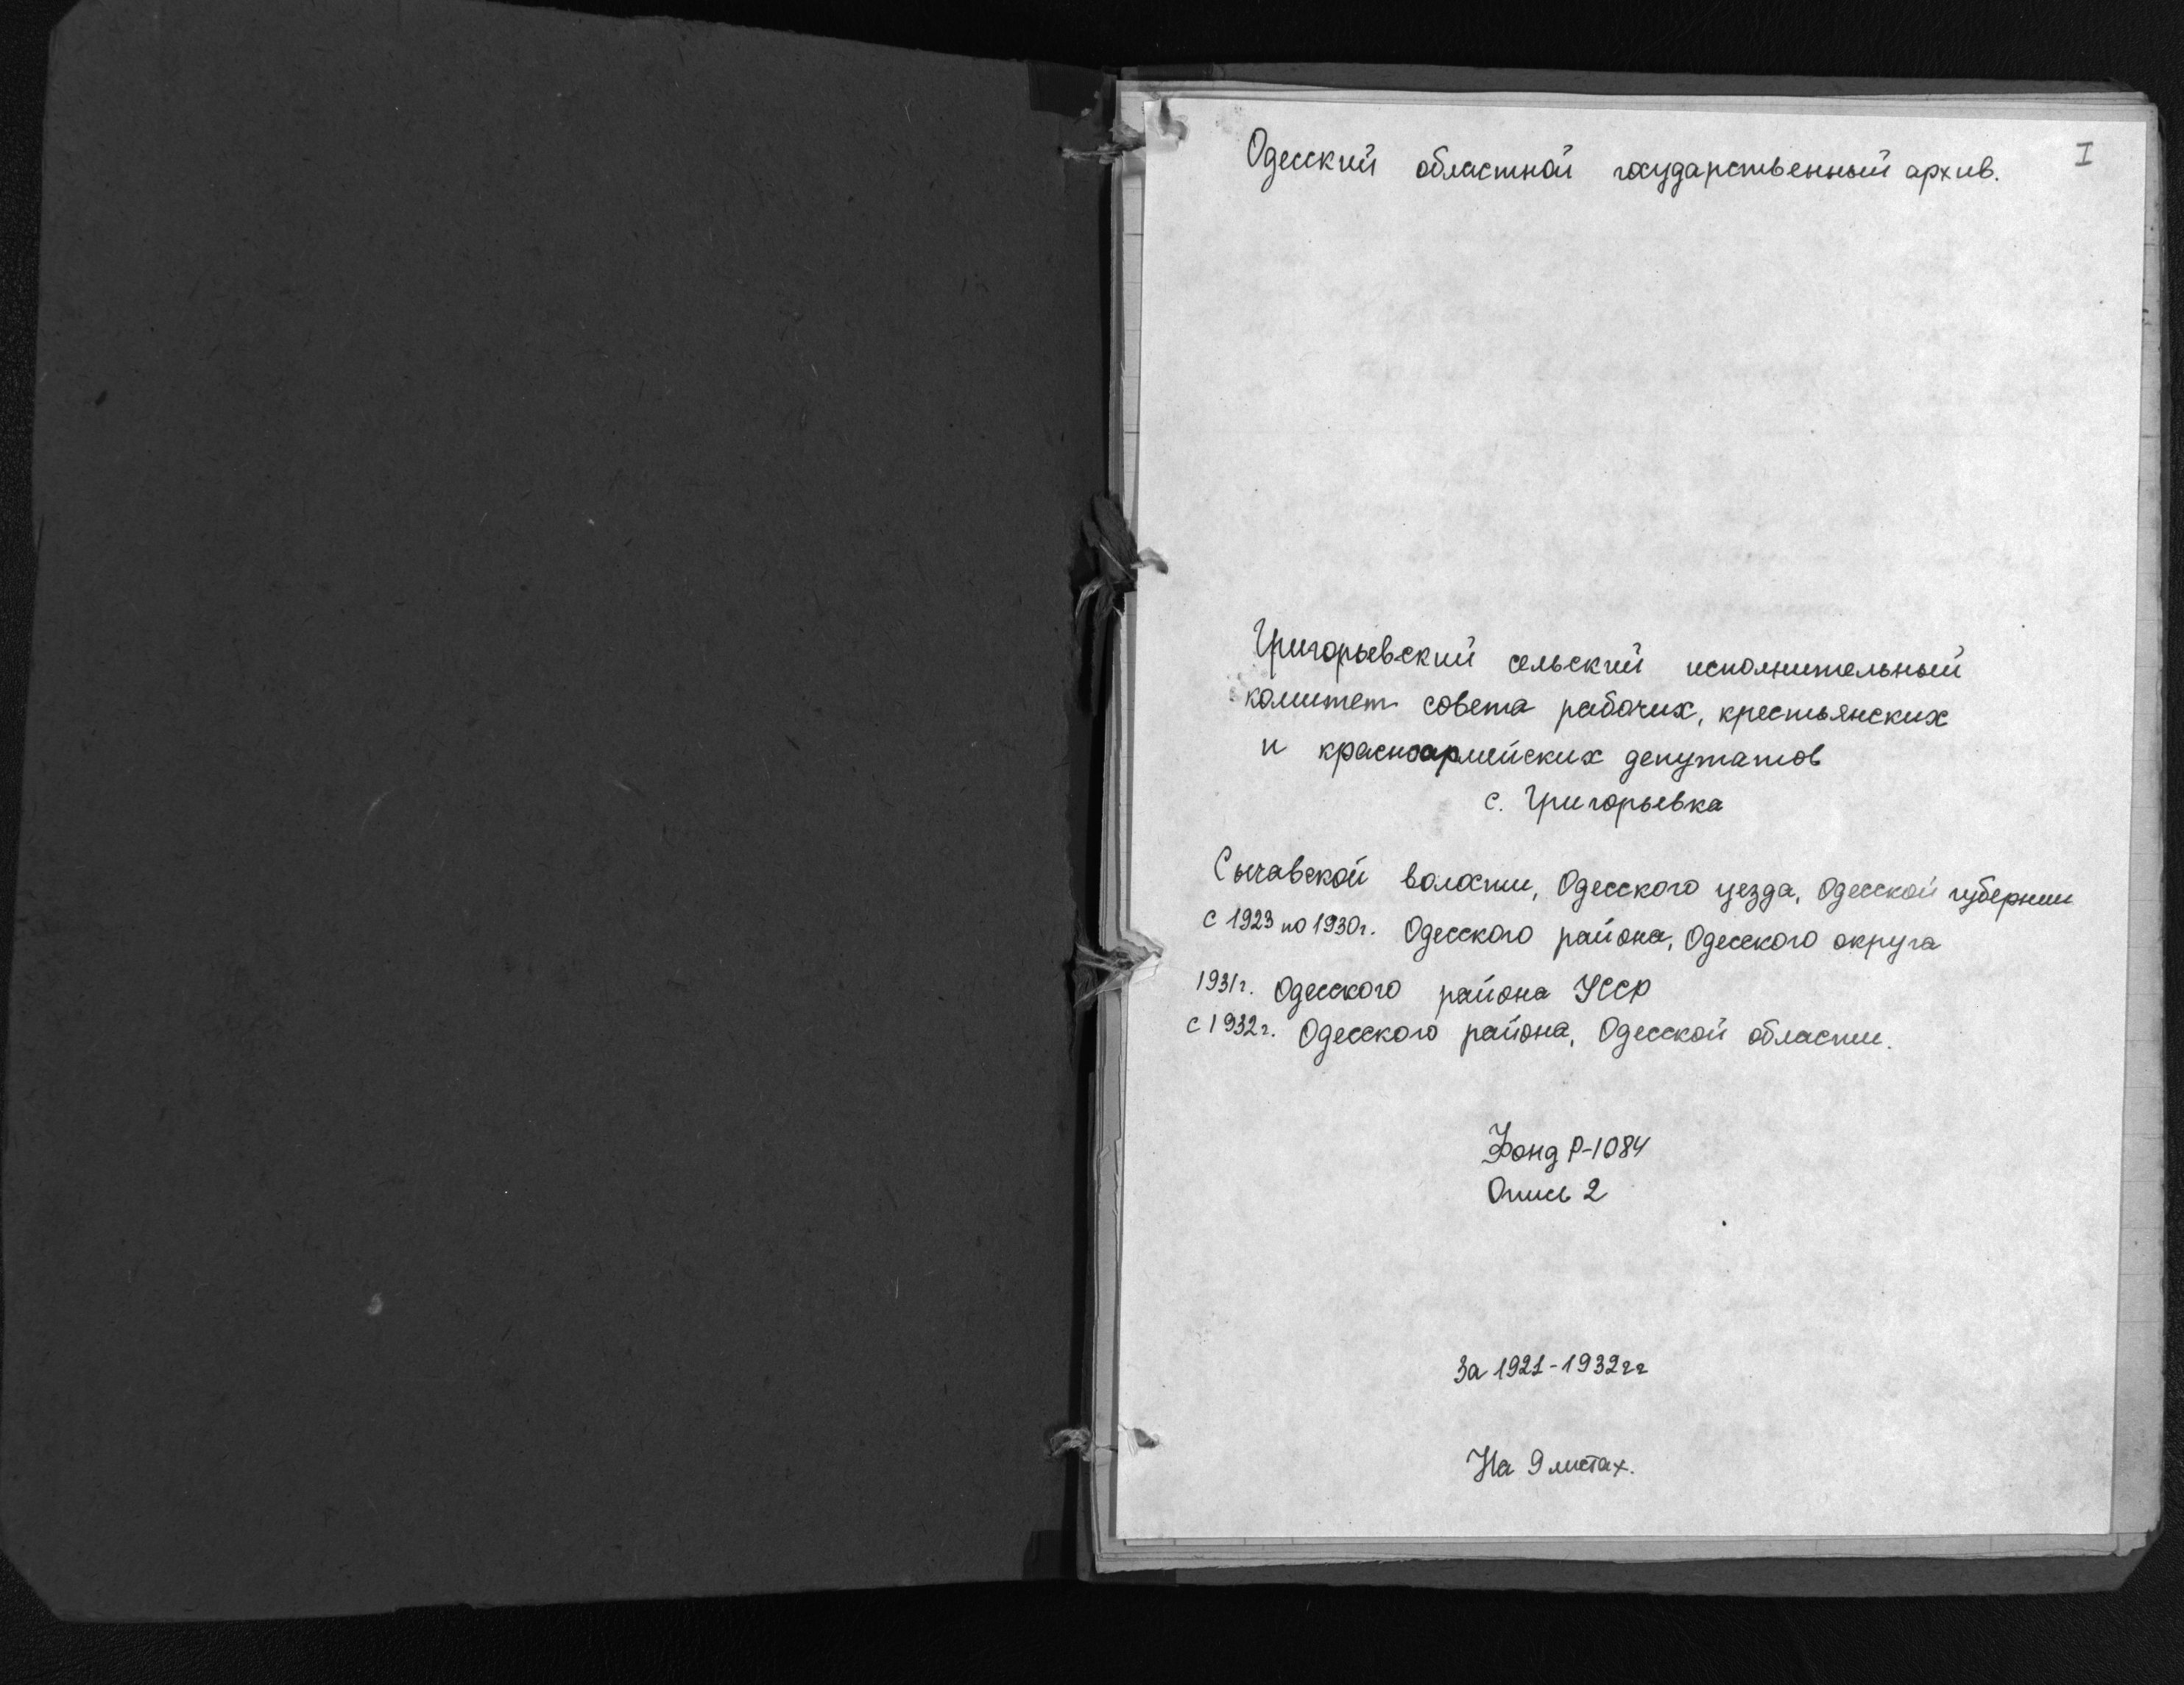 Одесский областной государственный архив.
I
Григорьевский сельский исполнительный
комитет совета рабочих, крестьянских
и красноармейских депутатов
с. Григорьевка
Сычавской волости, Одесского уезда, Одесской губернии
с 1923 по 1930г. Одесского района, Одесского округа
1931г. Одесского района УССР
с 1932г. Одесского района, Одесской области.
Фонд Р-1084
Опись 2
За 1921-1932гг
На 9 листах.